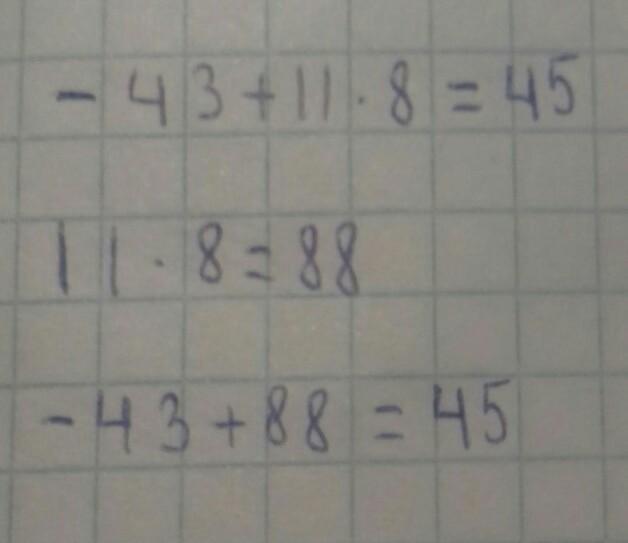 - 43 + 11 · 8 = 45
11 · 8 = 88
- 43 + 88 = 45